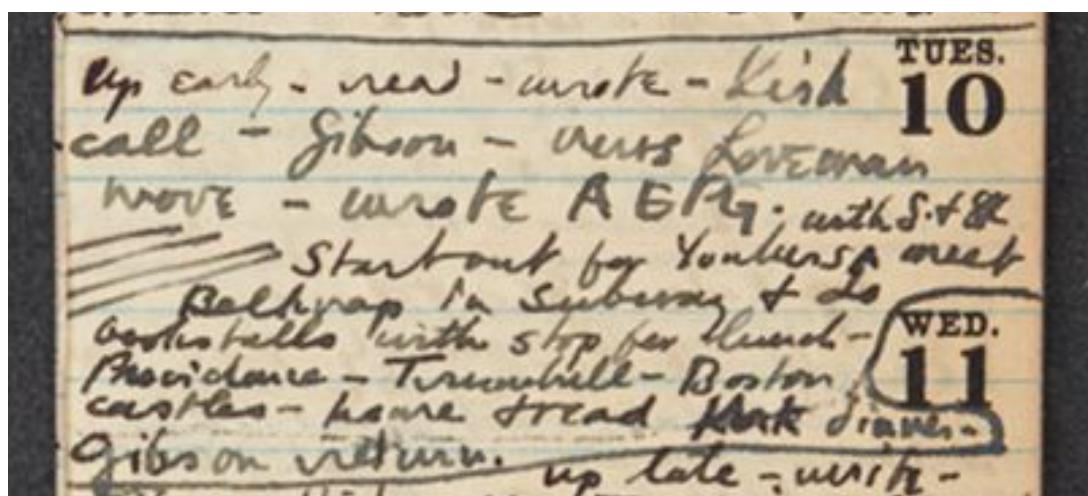 TUES.
10
up early - read - wrote - Kirk
call - Gibson - news Loveman
move - wrote A E P G. with S. + 
Start out for Yonkers meet
Belknap in subway + do
bookstalls with stop for lunch -
WED.
11
Providence - - Boston
castles - home + read Kirk dinner -
Gibson return.
up late - write -